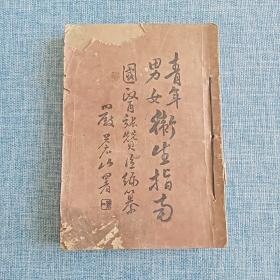 青年
男女衛生指南
國医張贊臣編纂
嚴蒼山署